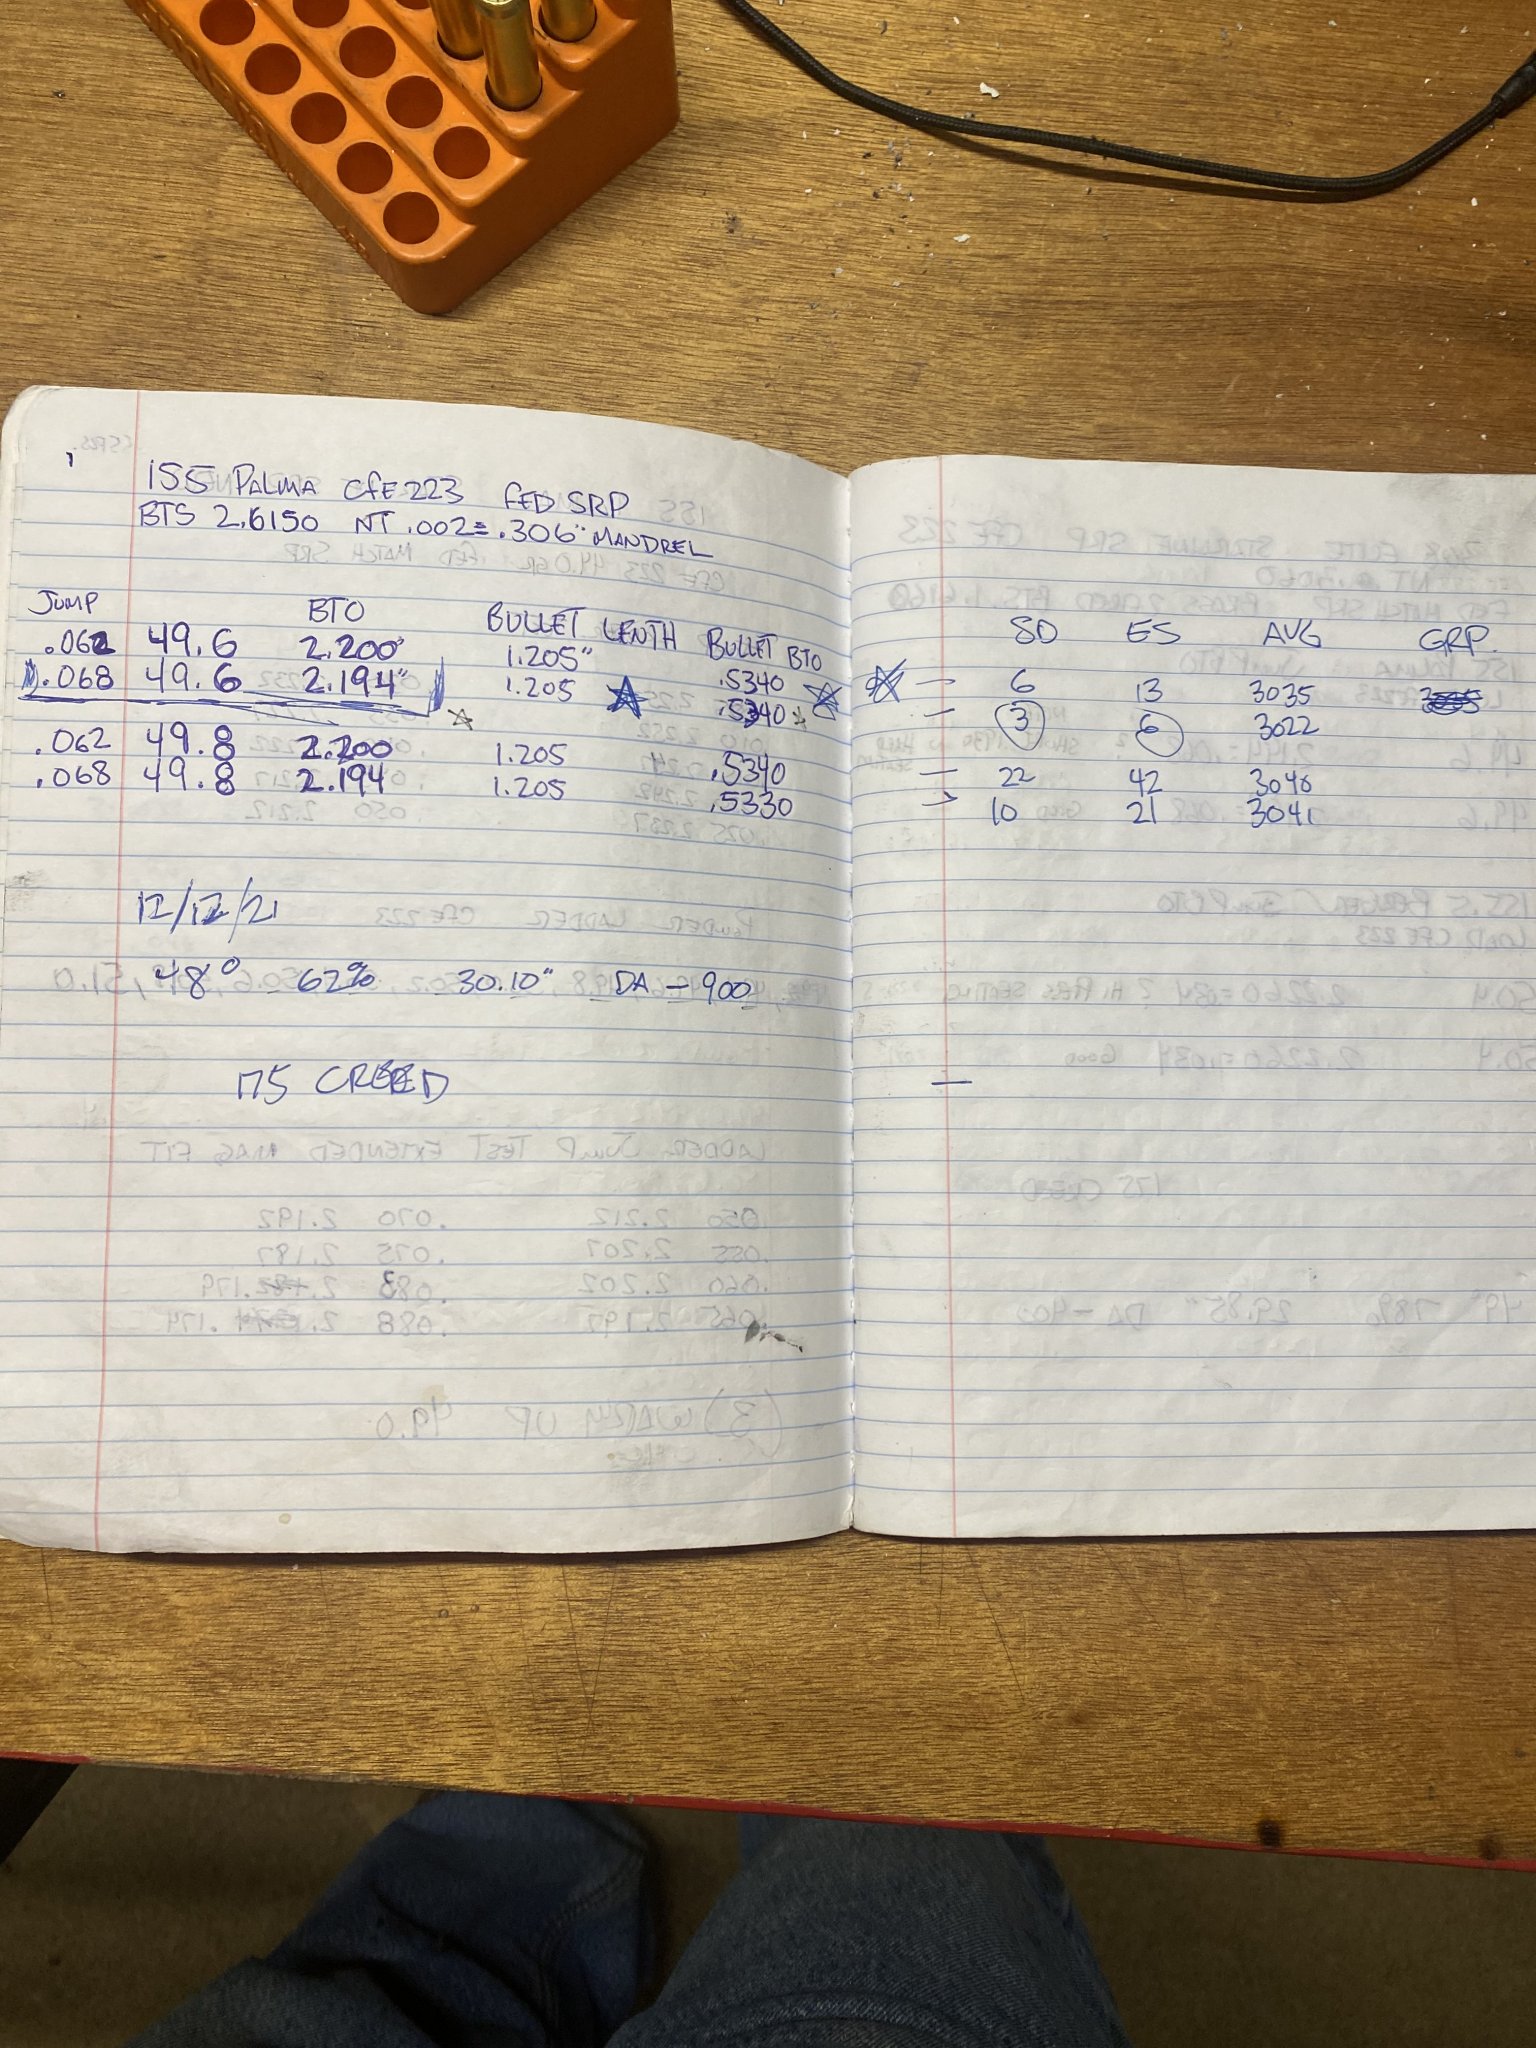 155 PALMA CFE 223 FED SRP
BTS 2.6150 NT .002= .306" MANDREL
JUMP BTO BULLET LENTH BULLET BTO SD ES AVG GRP.
.062 49.6 2.200" 1.205" .5340 — 6 13 3035
.068 49.6 2.194" 1.205 .5340 — 3 6 3022
.062 49.8 2.200 1.205 .5340 — 22 42 3048
.068 49.8 2.194 1.205 .5330 — 10 21 3041
12/12/21
48° 62% 30.10" DA -900
175 CREED —